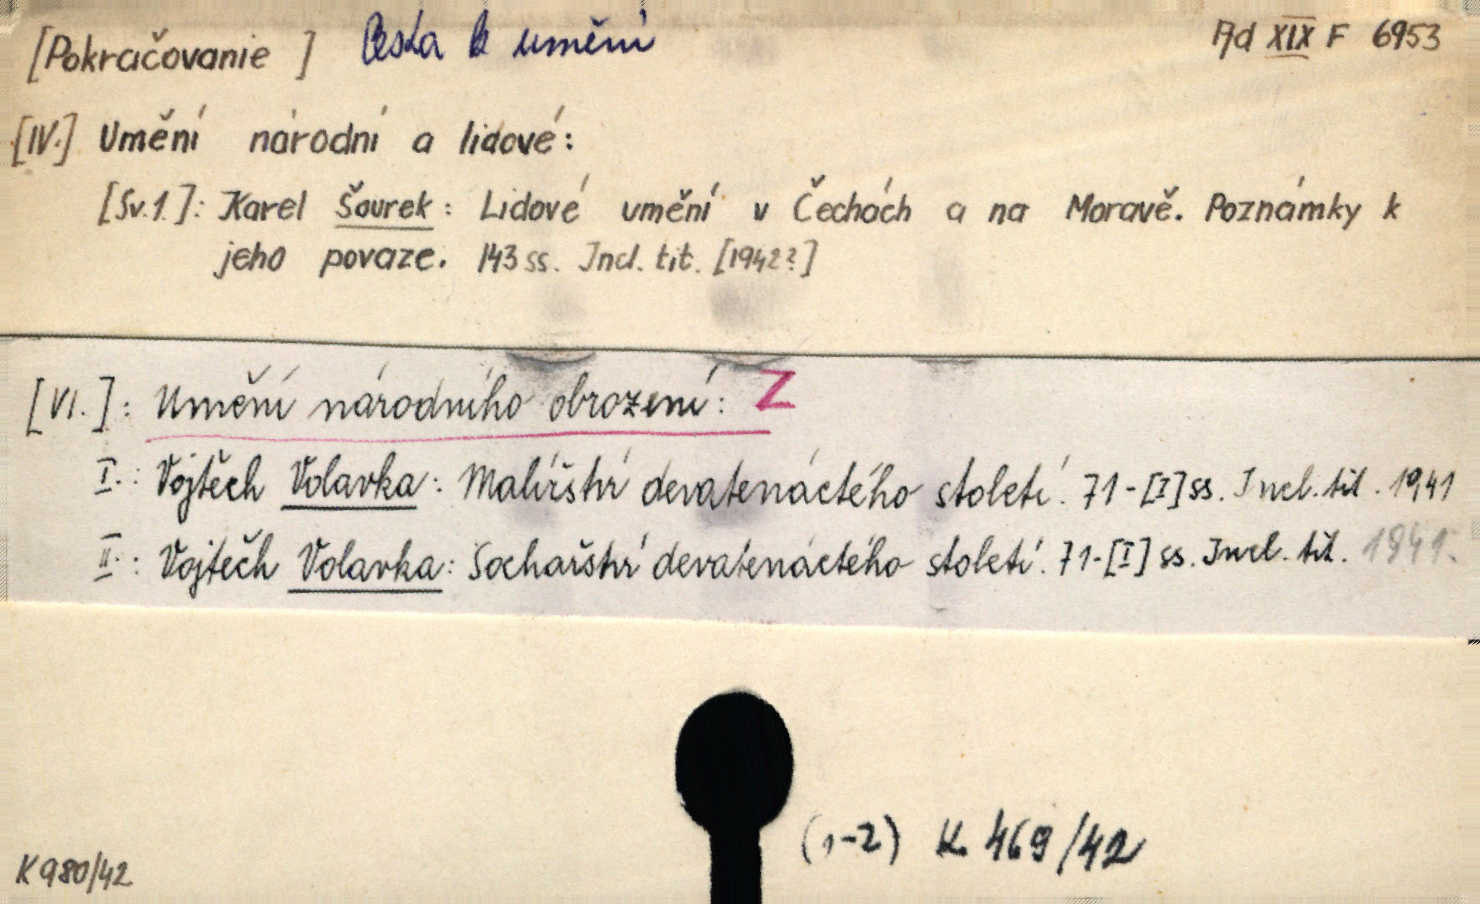 [Pokračovanie] Cesta k umění Ad XIX F 6953
[IV.] Umění národní a lidové:
[Sv.1.]: Karel Šourek: Lidové umění v Čechách a na Moravě. Poznámky k
jeho povaze. 143 ss. Incl. tit. [1942?]
[VI.]: Umění národního obrození: Z
I.: Vojtěch Volavka: Malířství devatenáctého století. 71-[I] ss. Incl. tit. 1941
II.: Vojtěch Volavka: Sochařství devatenáctého století. 71-[I] ss. Incl. tit. 1941.
(1-2) K 469/42
K 980/42